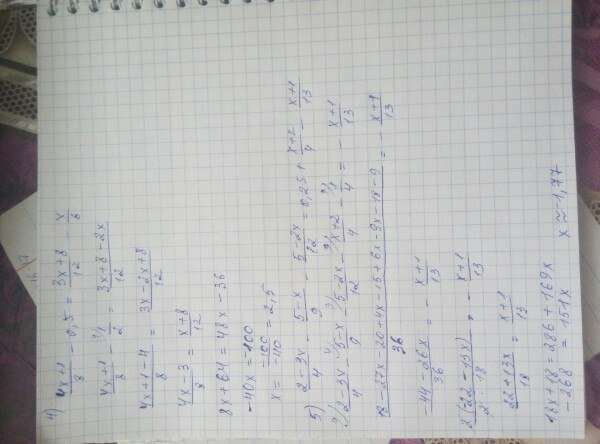 4) (4x+1)/8 - 0,5 = (3x+8)/12 - x/6
(4x+1)/8 - 1/2 = (3x+8-2x)/12
(4x+1-4)/8 = (3x-2x+8)/12
(4x-3)/8 = (x+8)/12
8x+64 = 48x-36
-40x = -100
x = -100/-40 = 2,5
5) (2-3x)/4 - (5-x)/9 - (5-2x)/12 = 0,25 + (x+2)/4 - (x+1)/13
(2-3x)/4 - (5-x)/9 - (5-2x)/12 - (x+2)/4 - 1/4 = - (x+1)/13
(18-27x-20+4x-15+6x-9x-18-9)/36 = - (x+1)/13
(-44-26x)/36 = - (x+1)/13
(22+13x)/18 = (x+1)/13
18x+18 = 286+169x
-268 = 151x x ≈ -1,77